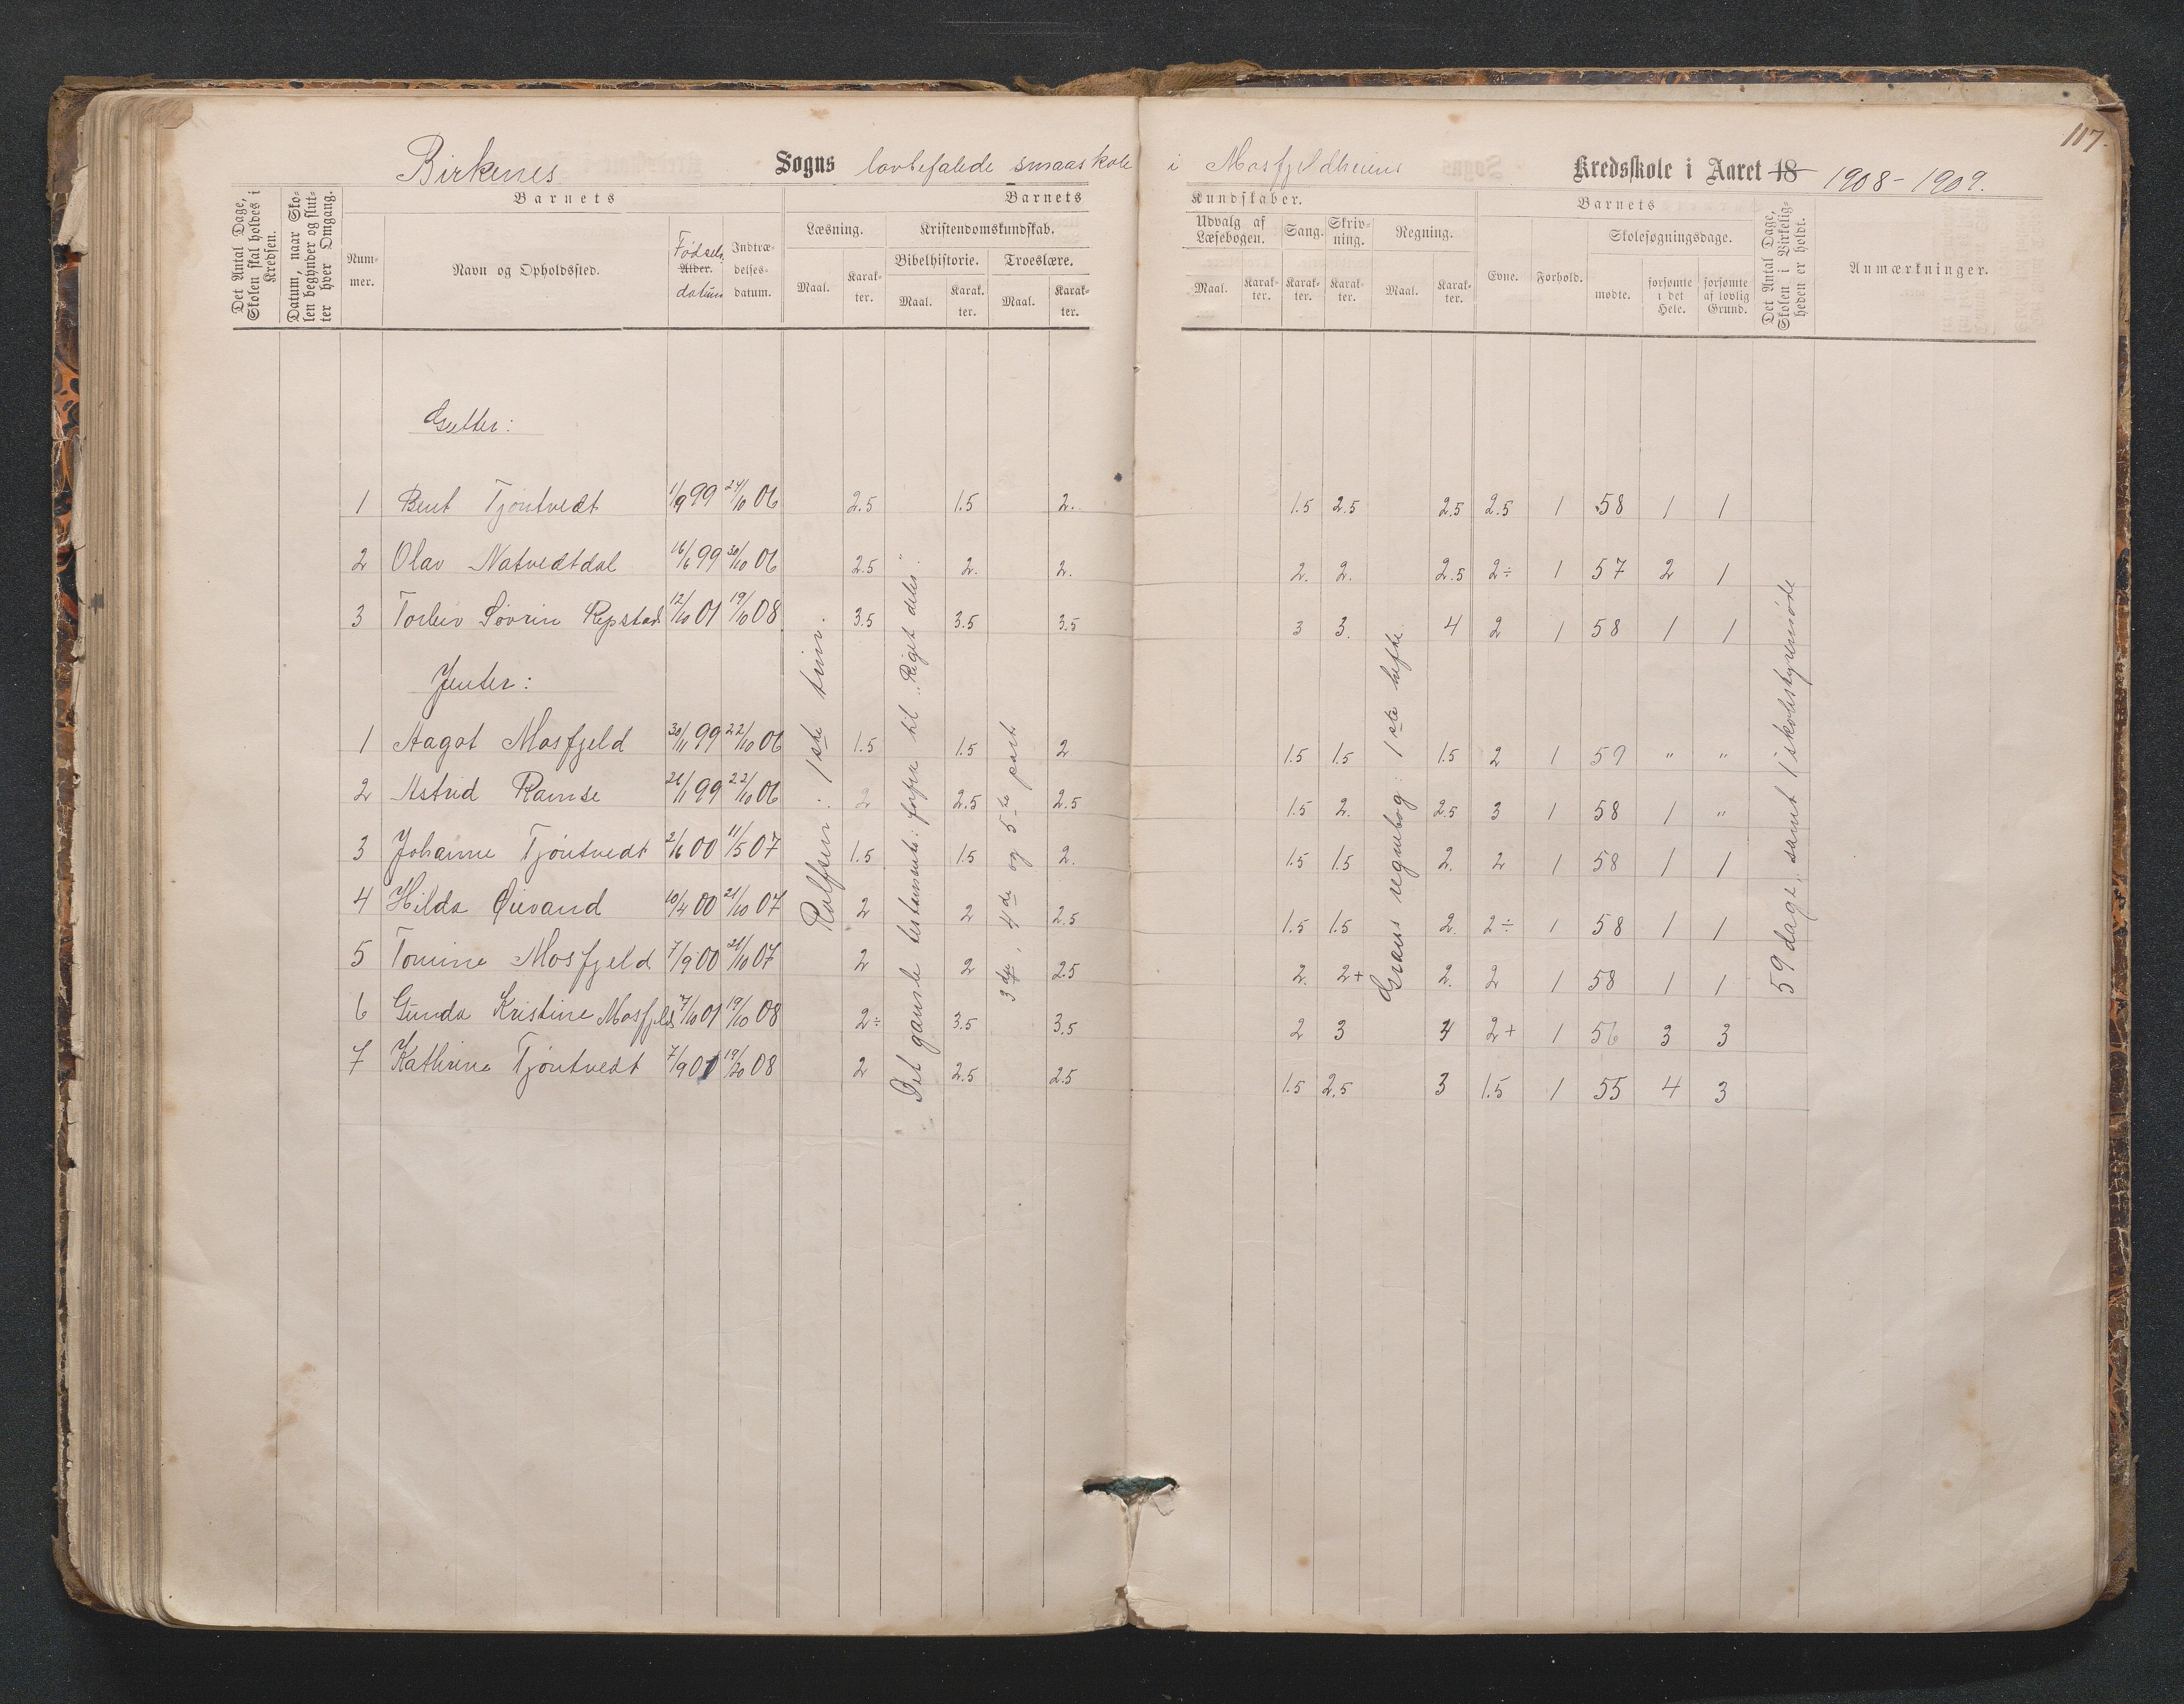 117.
Birkenes Sogns lovbefalede smaaskole i Mosfjeldheiens Kredsskole i Aaret 18 1908-1909.
Det Antal Dage, Skolen skal holdes i Kredsen.
Datum, naar Skolen begynder og slutter hver Omgang.
Barnets
Nummer.
Navn og Opholdssted.
Fødsels
Alder.
datum
Indtrædelsesdatum.
Barnets
Læsning.
Maal.
Karakter.
Kristendomskundskab.
Bibelhistorie.
Maal.
Karakter.
Troeslære.
Maal.
Karakter.
Kundskaber.
Udvalg af Læsebogen.
Maal.
Karakter.
Sang.
Karakter.
Skrivning.
Karakter.
Regning.
Maal.
Karakter.
Barnets
Evne.
Forhold.
Skolesøgningsdage.
mødte.
forsømte i det Hele.
forsømte af lovlig Grund.
Det Antal Dage, Skolen i Virkeligheden er holdt.
Anmærkninger.
Gutter:
1 Bent Tjøntvedt 1/9 99 24/10 06 2.5 1.5 2. 1.5 2.5 2.5 2.5 1 58 1 1
2 Olav Natvedtdal 16/6 99 30/10 06 2.5 2. 2. 2. 2. 2.5 2÷ 1 57 2 1
3 Torleiv Søvrin Repstad 12/10 01 19/10 08 3.5 3.5 3.5 3 3. 4 2 1 58 1 1
Jenter:
1 Aagot Mosfjeld 30/11 99 22/10 06 1.5 1.5 2 1.5 1.5 1.5 2 1 59 " "
2 Astrid Ramse 26/11 99 22/10 06 2 2.5 2.5 1.5 2. 2.5 3 1 58 1 "
3 Johanne Tjøntvedt 2/6 00 11/5 07 1.5 1.5 2. 1.5 1.5 2. 2 1 58 1 1
4 Hilda Øievand 10/4 00 21/10 07 2 2 2.5 1.5 1.5 2. 2÷ 1 58 1 1
5 Tomine Mosfjeld 7/9 00 21/10 07 2 2 2.5 2. 2+ 2. 2 1 58 1 1
6 Gunda Kristine Mosfjeld 7/10 01 19/10 08 2÷ 3.5 3.5 2 3 4 2+ 1 56 3 3
7 Kathrine Tjøntvedt 7/9 01 19/20 08 2 2.5 2.5 1.5 2.5 3 1.5 1 55 4 3
Rolfsen: 1ste trin.
Det gamle testamente: forfra til „Riget deles".
3dje, 4de og 5te part
Græns regnebog: 1ste hefte.
59 dage, samt 1 skolestyremøde